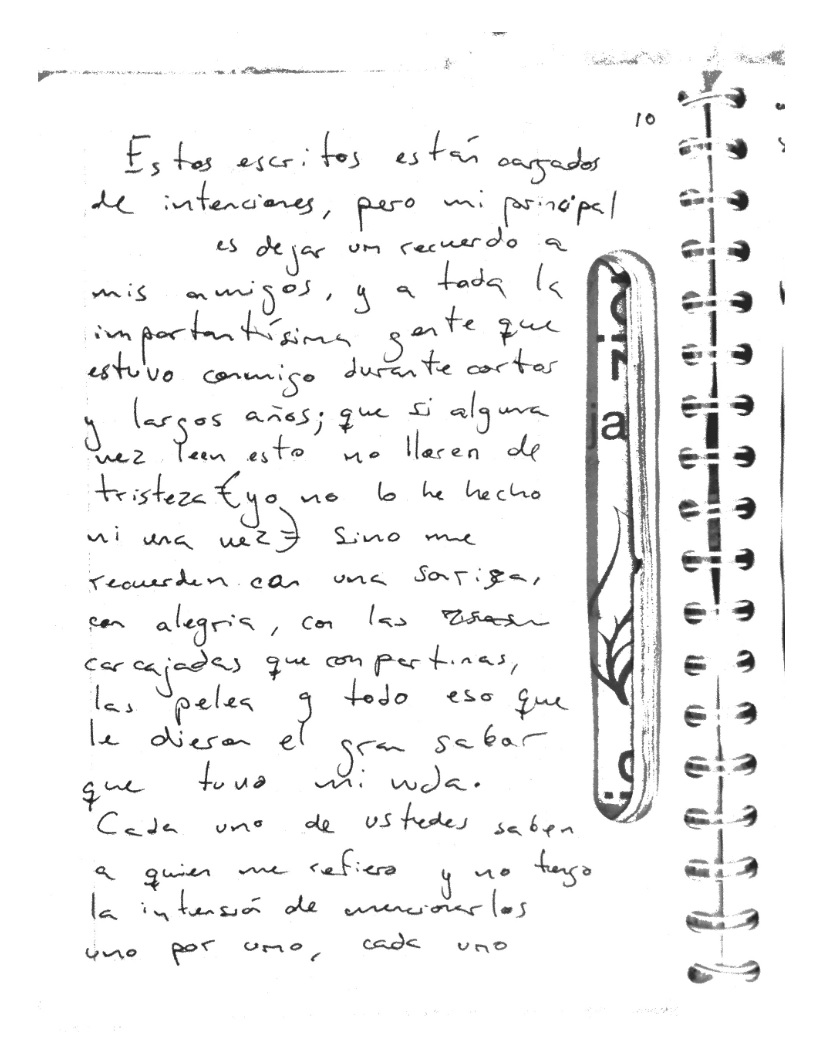 10
Estos escritos están cargados
de intenciones, pero mi principal
es dejar un recuerdo a
mis amigos, y a toda la
importantísima gente que
estuvo conmigo durante cortos
y largos años; que si alguna
vez leen esto no lloren de
tristeza (yo no lo he hecho
ni una vez) Sino me
recuerden con una sonrisa,
con alegria, con las
carcajadas que compartimos,
las pelea y todo eso que
le dieron el gran sabor
que tuvo mi vida.
Cada uno de ustedes saben
a quien me refiero y no tengo
la intensión de mencionarlos
uno por uno, cada uno
ja